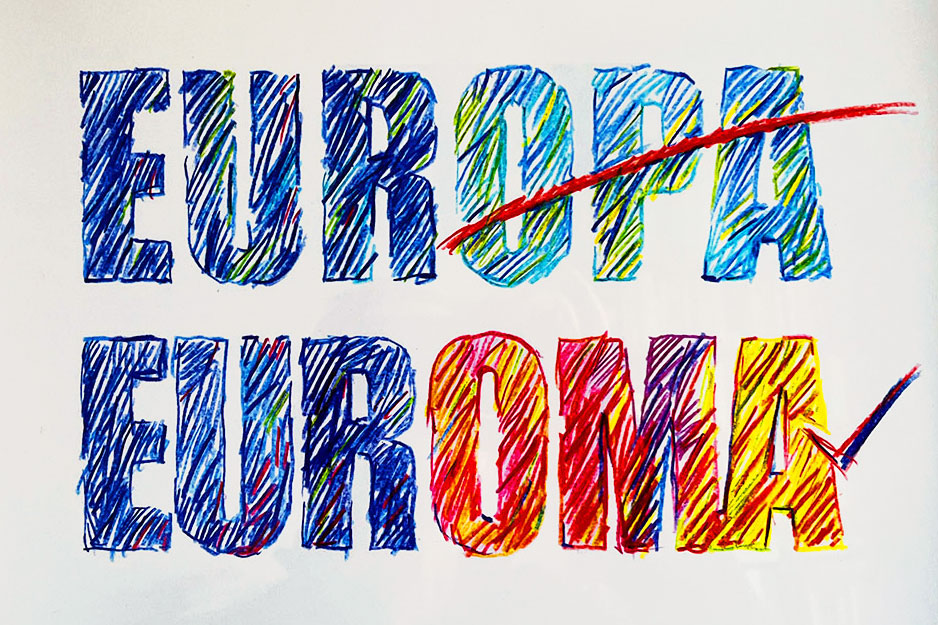 EUROPA
EUROMA